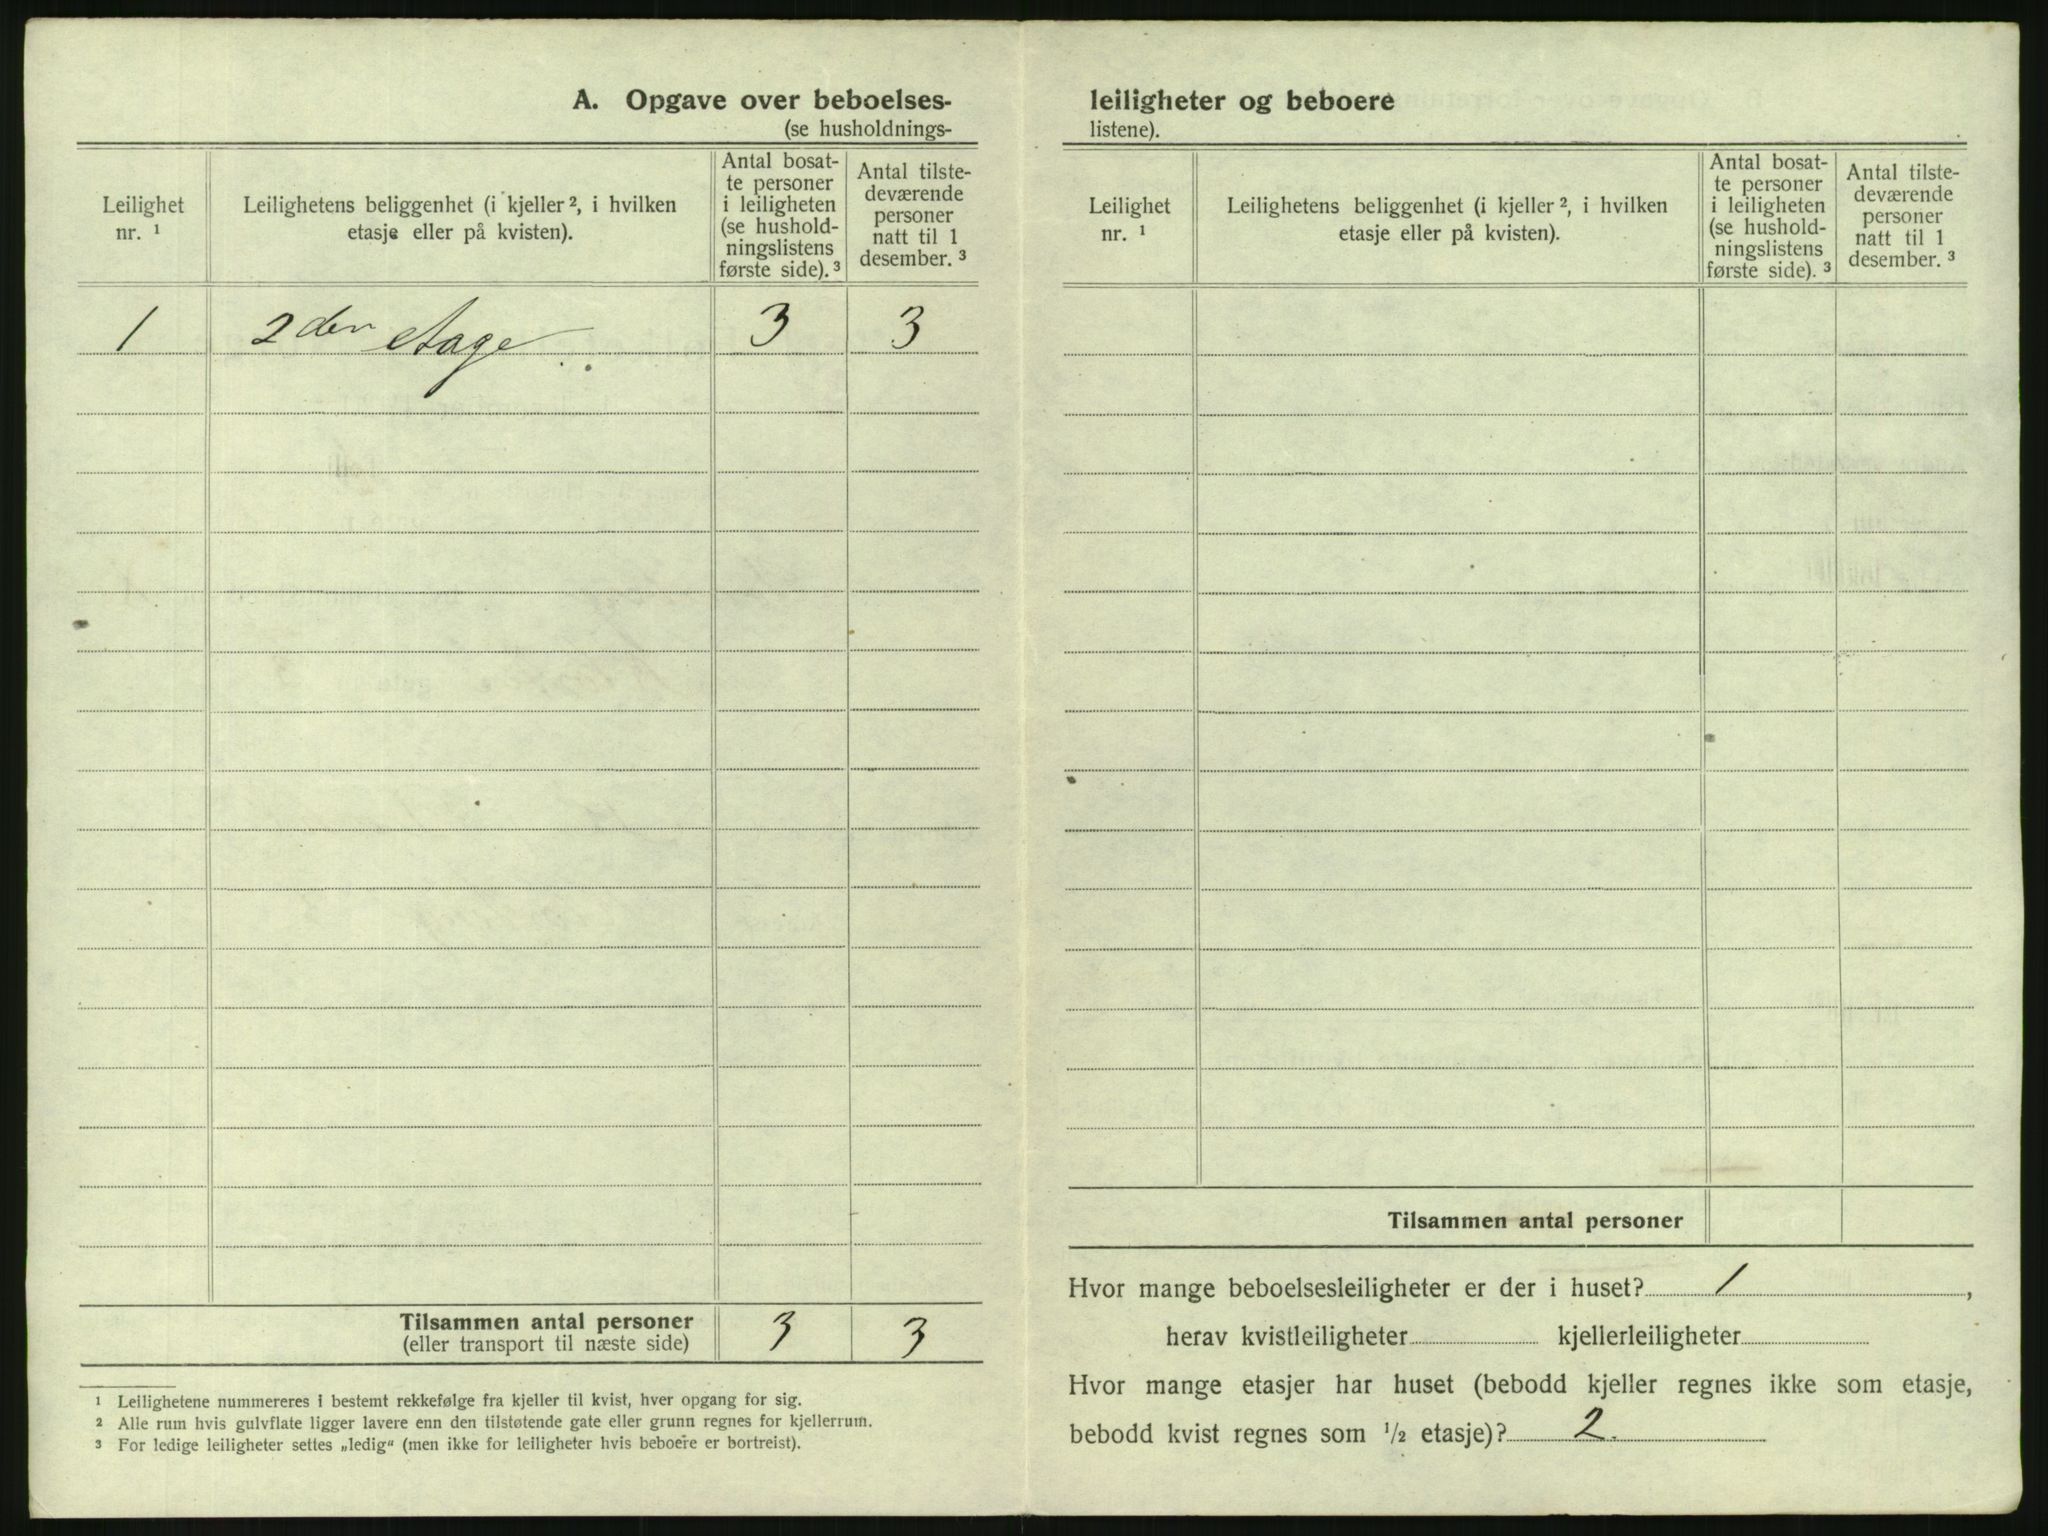 A. Opgave over beboelses-
(se husholdnings-
Leilighet
nr. ¹
Leilighetens beliggenhet (i kjeller ², i hvilken
etasje eller på kvisten).
Antal bosat-
te personer
i leiligheten
(se hushold-
ningslistens
første side). ³
Antal tilste-
deværende
personer
natt til 1
desember. ³
1 2den etage 3 3
Tilsammen antal personer 3 3
(eller transport til næste side)
¹ Leilighetene nummereres i bestemt rekkefølge fra kjeller til kvist, hver opgang for sig.
² Alle rum hvis gulvflate ligger lavere enn den tilstøtende gate eller grunn regnes for kjellerrum.
³ For ledige leiligheter settes „ledig“ (men ikke for leiligheter hvis beboere er bortreist).
leiligheter og beboere
listene).
Leilighet
nr. ¹
Leilighetens beliggenhet (i kjeller ², i hvilken
etasje eller på kvisten).
Antal bosat-
te personer
i leiligheten
(se hushold-
ningslistens
første side). ³
Antal tilste-
deværende
personer
natt til 1
desember. ³
Tilsammen antal personer
Hvor mange beboelsesleiligheter er der i huset? 1,
herav kvistleiligheter kjellerleiligheter
Hvor mange etasjer har huset (bebodd kjeller regnes ikke som etasje,
bebodd kvist regnes som ½ etasje)? 2.